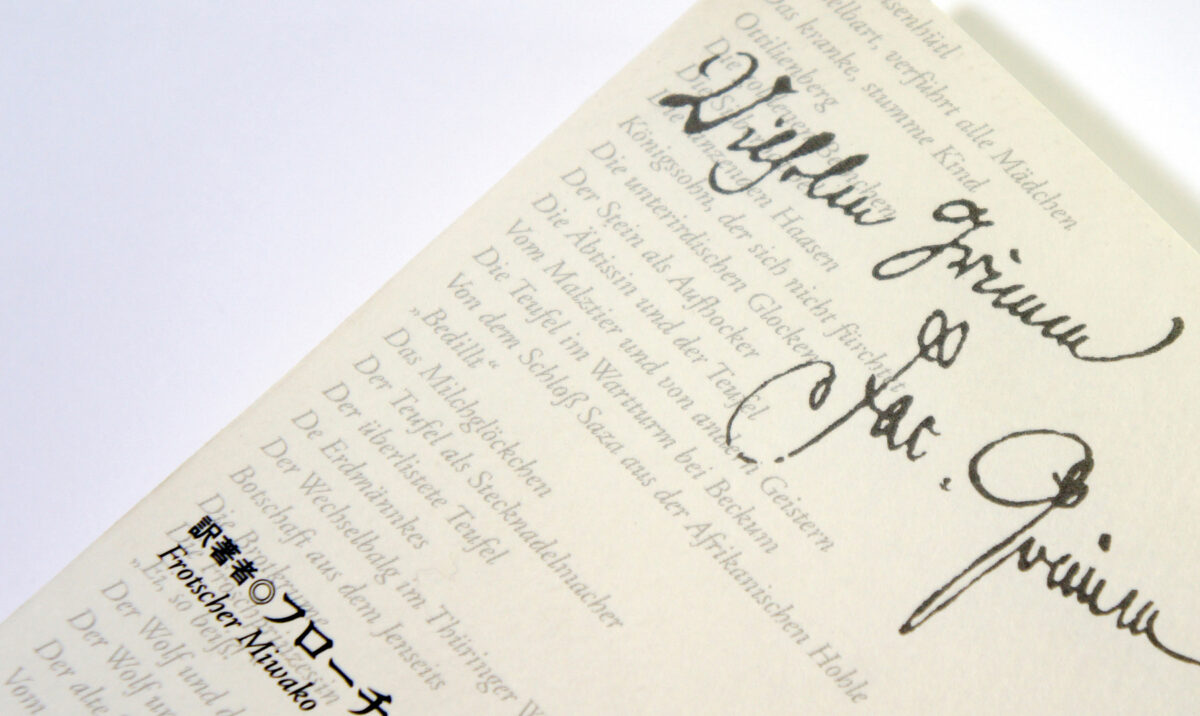 senhütl
elbart, verführt alle Mädchen
Das kranke, stumme Kind
Ottilienberg
Königssohn, der sich nicht fürchtet
Die unterirdischen Glocken
Der Stein als Aufhocker
Die Äbtissin und der Teufel
Vom Malztier und von andern Geistern
Die Teufel im Wartturm bei Beckum
Von dem Schloß Saza aus der Afrikanischen Hohle
„Bedillt“
Das Milchglöckchen
Der Teufel als Stecknadelmacher
Der überlistete Teufel
De Erdmännkes
Der Wechselbalg im Thüringer W
Botschaft aus dem Jenseits
Die Brotkrume
„Ei, so beiß!“
Der Wolf und d
Der Wolf un
Der alte
Vom
Wilhelm Grimm
&
Jac. Grimm
訳著者◎フローチ
Frotscher Miwako